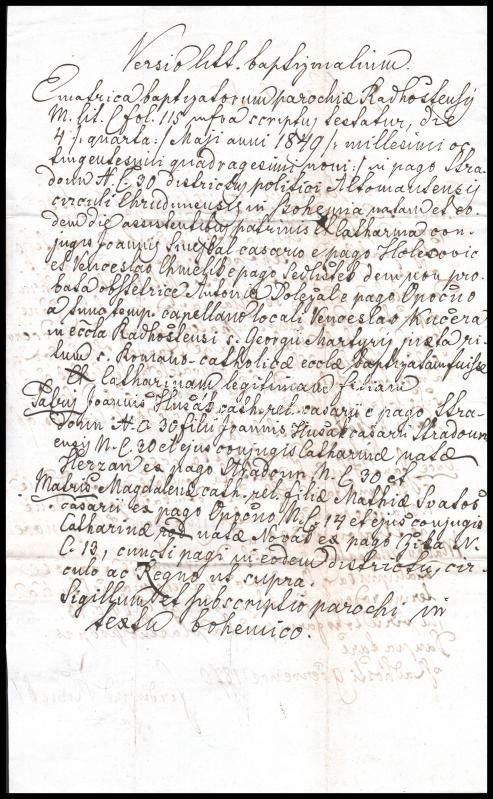 Versio litt. baptismalium.
E matrica baptizatorum parochiæ Radhostensis
M. lit. C fol. 115 infra scriptus testatur, die
4 /: quarta :/ Maji anni 1849 /: millesimi oc-
tingentesimi quadragesimi noni :/ in pago Stra-
doun N. C. 30 districtus politici Altomautensis
circuli Chrudimensis in Bohemia natam et eo-
dem die assistentibus patrinis Catharina con-
juge Joannis casario e pago Holesovic
et Venceslao e pago Sedlüsek dein non pro-
bata obstetrice Antonia Dolezal e pago Opočno
a tunc temp. capellano locali Venceslao Kučera
in eccla Radhostensi s. Georgii Martyris juxta ri-
tum s. Romano-catholicæ ecclæ baptizatam fuisse
Catharinam legitimam filiam
Patris Joannis Husák cath. rel. casarii e pago Stra-
doun N. C. 30 filii Joannis Husák casarii Stradoun
ensis N. C. 30 et ejus conjugis Catharinæ natæ
Herzan ex pago Stradoun N. C. 30 et
Matris Magdalenæ cath. rel. filiæ Mathiæ Svatoš
casarii ex pago Opočno N. C. 14 et ejus conjugis
Catharinæ natæ Novák ex pago N.
C. 13, cuncti pagi in eodem districtu, cir-
culo ac Regno ut supra.
Sigillum et subscriptio parochi in
textu bohemico.